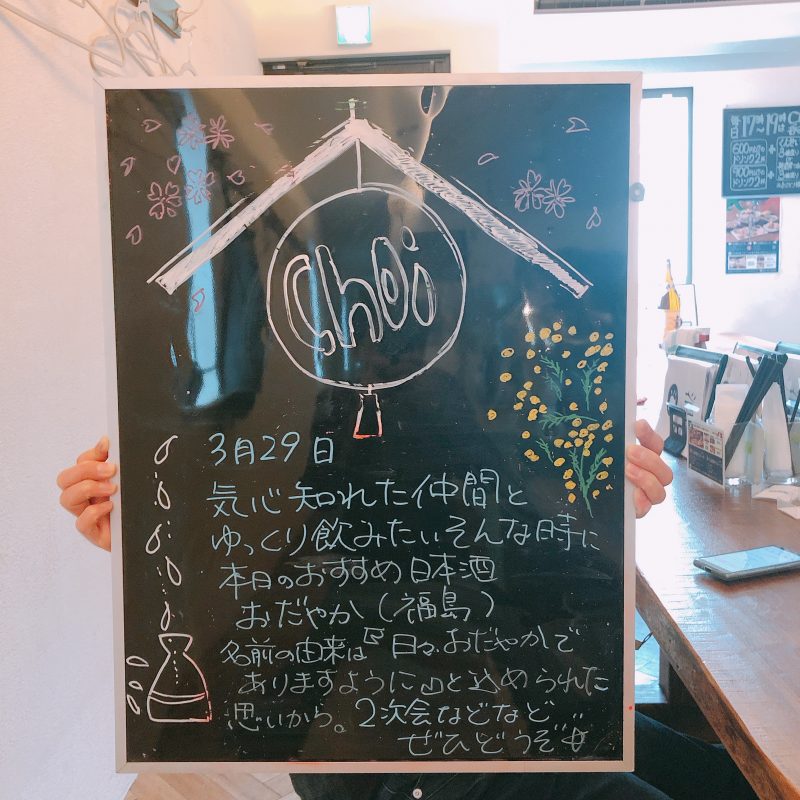 Choi
3月29日
気心知れた仲間と
ゆっくり飲みたいそんな時に
本日のおすすめ日本酒
おだやか(福島)
名前の由来は『日々、おだやかで
ありますように』と込められた
思いから。2次会などなど
ぜひどうぞ
毎日17時〜19時
600
ドリンク2杯
900
ドリンク2杯